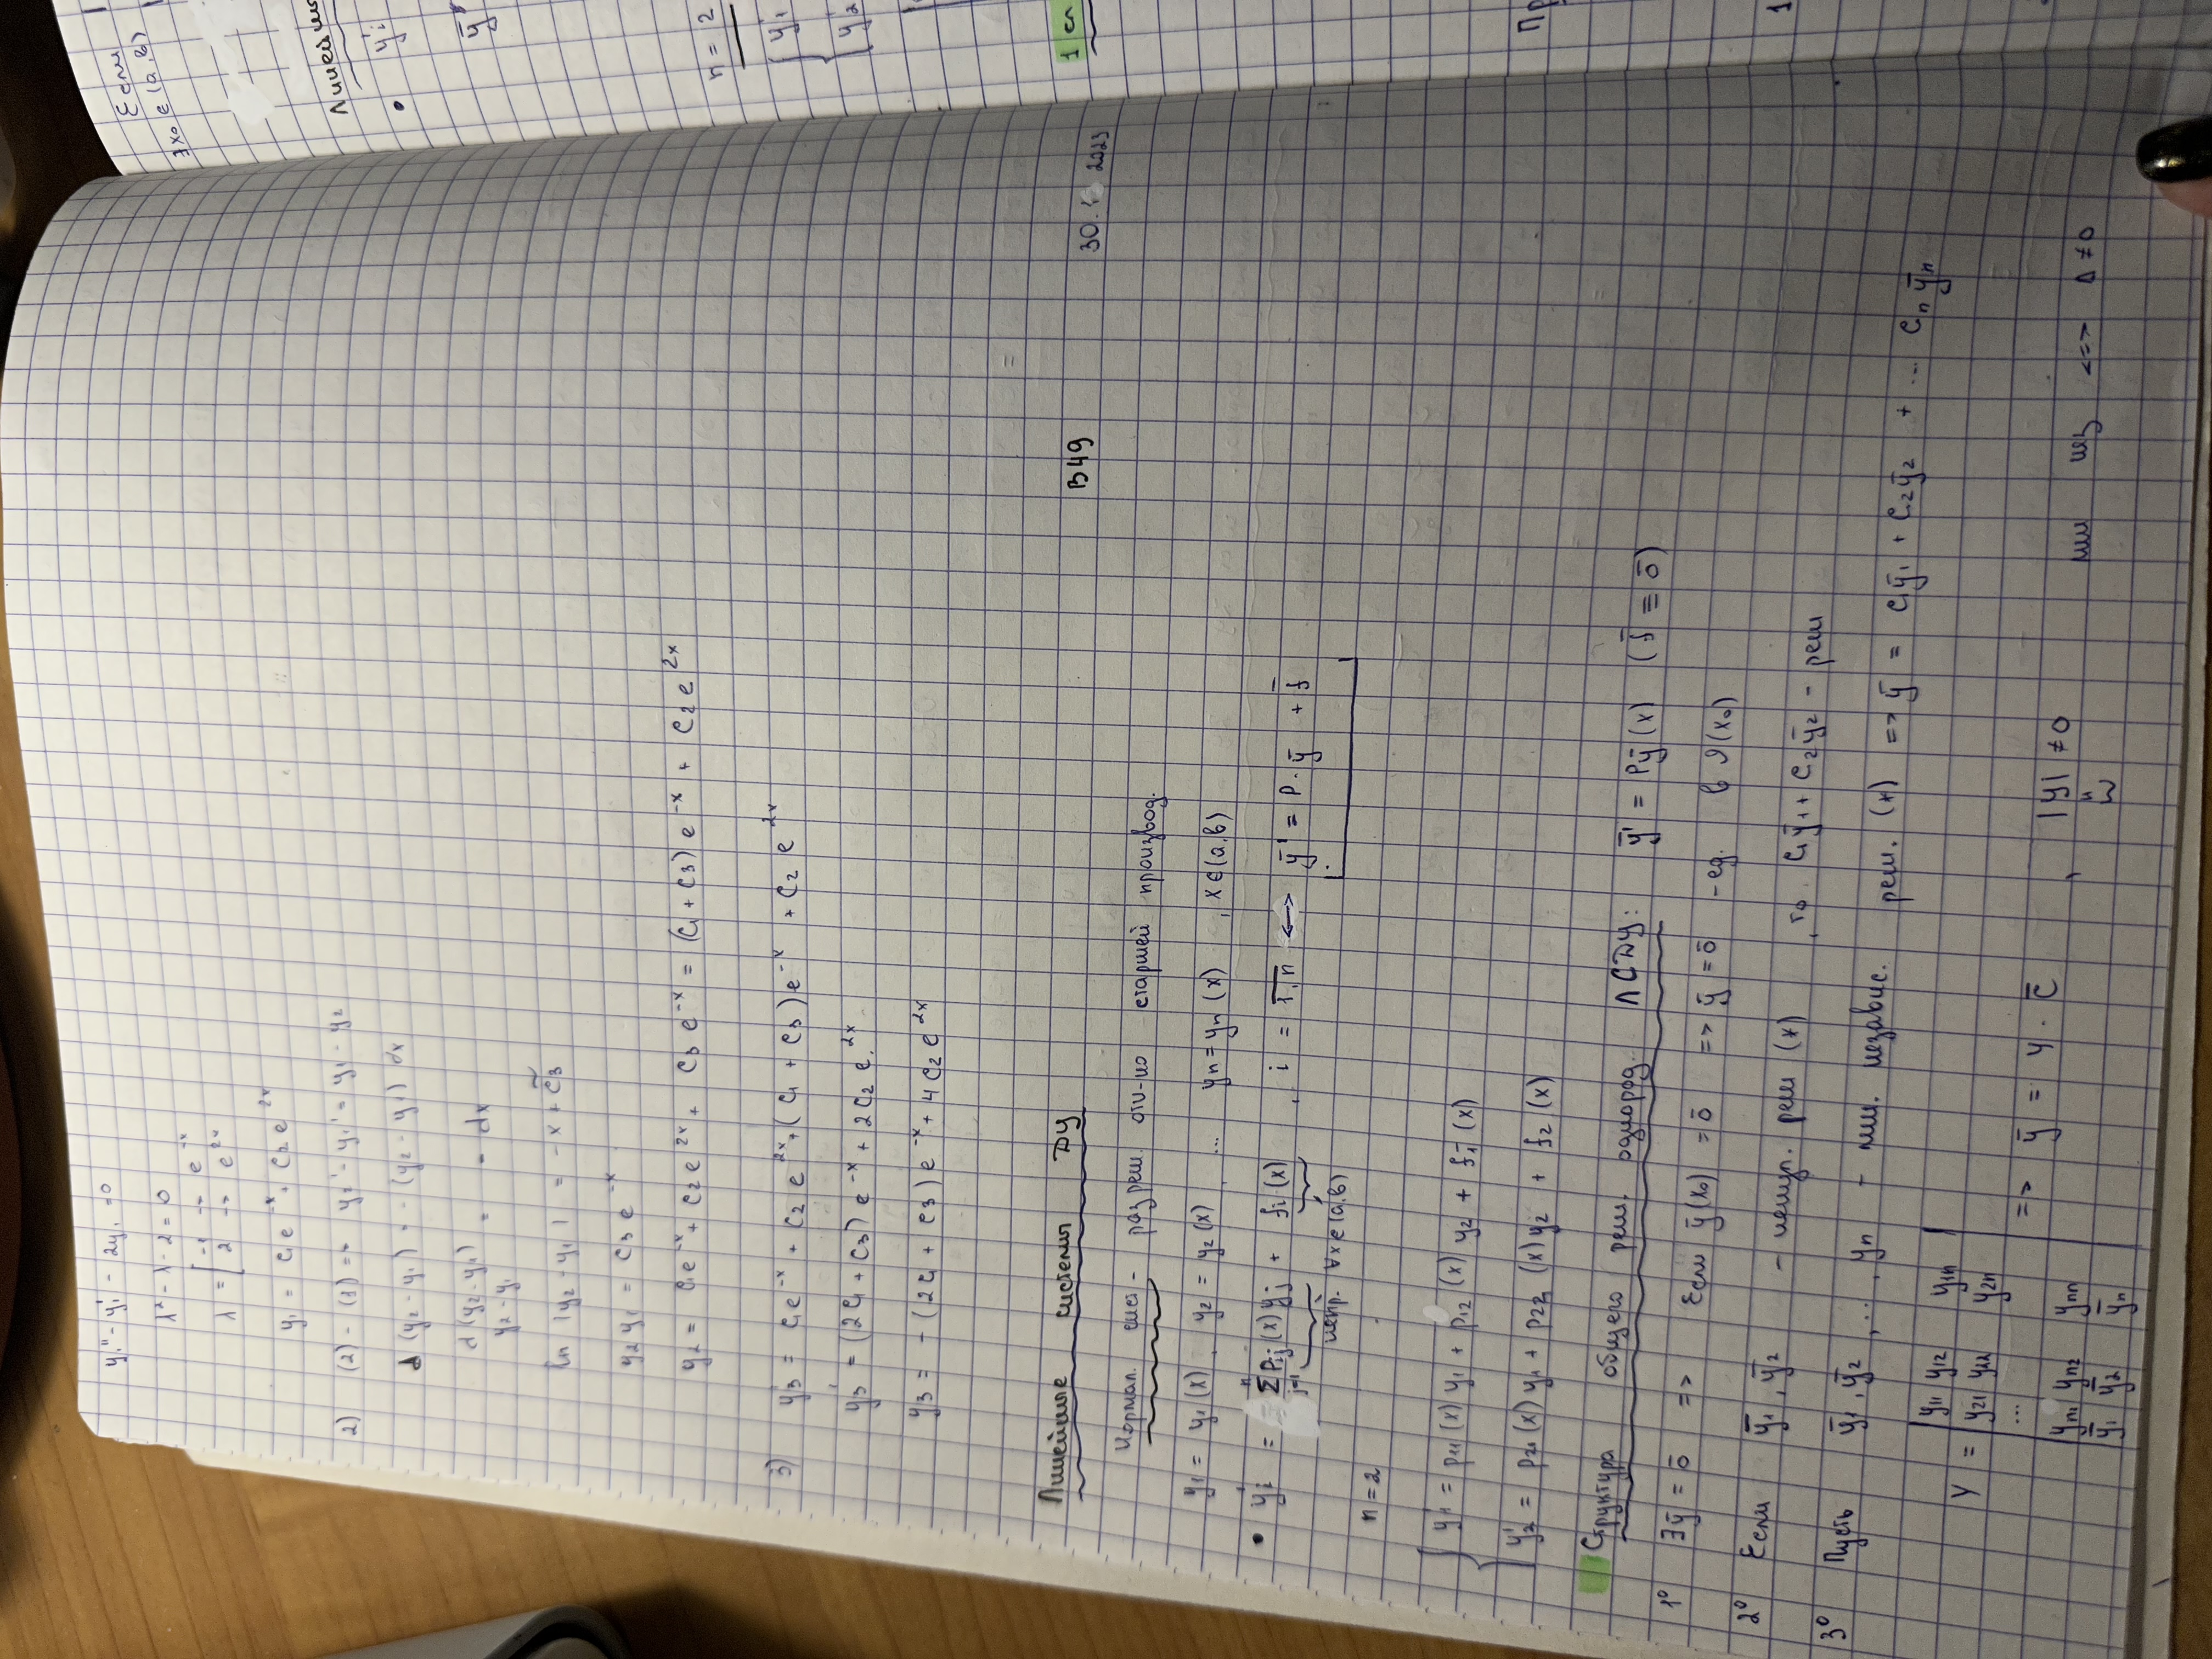 y₁'' - y₁' - 2y₁ = 0
λ² - λ - 2 = 0
λ = [ -1 → e^{-x}
2 → e^{2x}
y₁ = c₁e^{-x} + c₂e^{2x}
2) (2) - (1) => y₂' - y₁' = y₁ - y₂
d(y₂ - y₁) = -(y₂ - y₁) dx
d(y₂ - y₁)
y₂ - y₁ = - dx
ln |y₂ - y₁| = -x + c̃₃
y₂ y₁ = c₃ e^{-x}
y₂ = c₁e^{-x} + c₂e^{2x} + c₃e^{-x} = (c₁ + c₃) e^{-x} + c₂e^{2x}
3) y₃' = c₁e^{-x} + c₂e^{2x} + (c₁ + c₃)e^{-x} + c₂e^{2x}
y₃' = (2c₁ + c₃) e^{-x} + 2c₂e^{2x}
y₃ = -(2c₁ + c₃) e^{-x} + 4c₂e^{2x}
Линейные системы ДУ В49 30. 2023
Нормал. сист - разреш. отн-но старшей производ.
y₁ = y₁(x), y₂ = y₂(x), ... yₙ = yₙ(x), x∈(a,b)
• yᵢ' = Σ_{j=1}^{n} pᵢⱼ(x)yⱼ + fᵢ(x), i = 1,n <=> ȳ' = P·ȳ + f̄
непр. ∀x∈(a,b)
n = 2
{ y₁' = p₁₁(x) y₁ + p₁₂(x) y₂ + f₁(x)
y₂' = p₂₁(x) y₁ + p₂₂(x) y₂ + f₂(x)
Структура общего реш. однород. ЛСДУ: ȳ' = Pȳ(x) (f̄ ≡ ō)
1° ∃ȳ = ō => Если ȳ(x₀) = ō => ȳ = ō - ед. в (x₀)
2° Если ȳ₁, ȳ₂ - ненул. реш (x), то c₁ȳ₁ + c₂ȳ₂ - реш
3° Пусть ȳ₁, ȳ₂, ..., yₙ - лин. независ. реш. (x) => ȳ = c₁ȳ₁ + c₂ȳ₂ + ... cₙȳₙ
Y = | y₁₁ y₁₂ y₁ₙ |
y₂₁ y₂₂ y₂ₙ
...
yₙ₁ yₙ₂ yₙₙ => ȳ = Y · c̄, |Y| ≠ 0 лин нез <=> Δ ≠ 0
ȳ₁ ȳ₂ ȳₙ
Если
∃x₀ ∈ (a,b)
• yᵢ'
n = 2
{ y₁'
y₂'